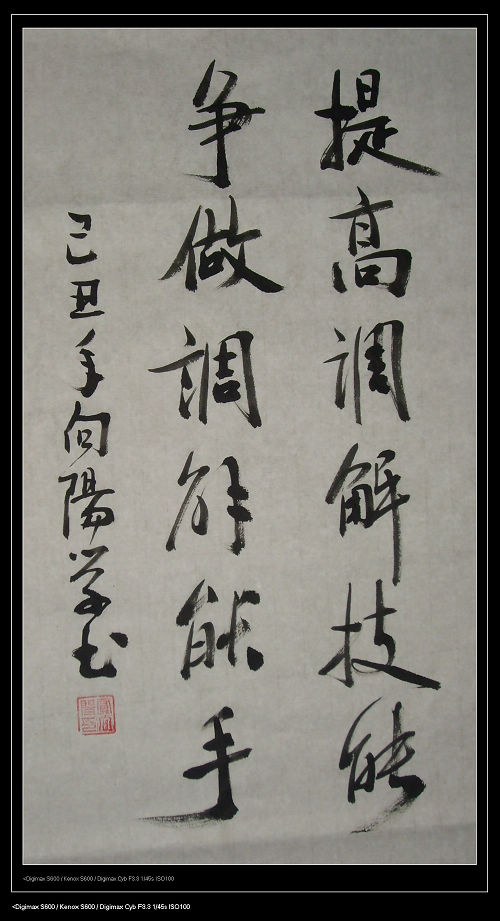 提高调解技能
争做調解能手
己丑年向陽学书
<Digimax S600 / Kenox S600 / Digimax Cyb F3.3 1/45s ISO100
<Digimax S600 / Kenox S600 / Digimax Cyb F3.3 1/45s ISO100